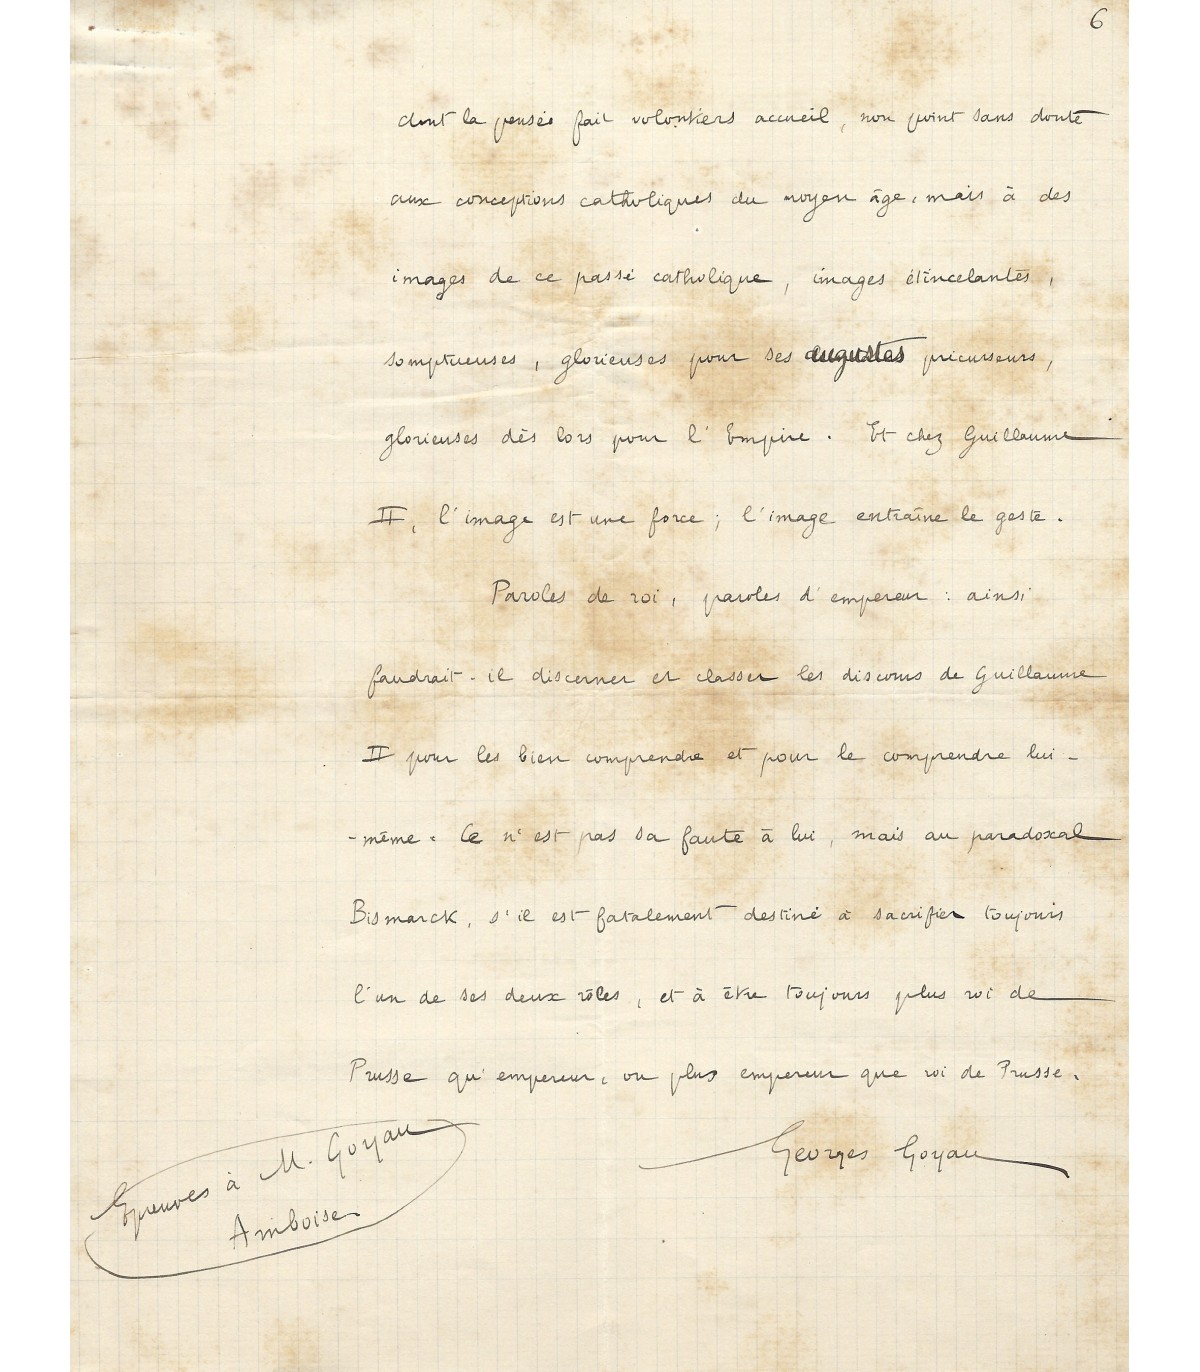 6
dont la pensée fait volontiers accueil, non point sans doute
aux conceptions catholiques du moyen âge, mais à des
images de ce passé catholique, images étincelantes,
somptueuses, glorieuses pour ses augustes précurseurs,
glorieuses dès lors pour l'Empire. Et chez Guillaume
II, l'image est une force; l'image entraîne le geste.
Paroles de roi, paroles d'empereur : ainsi
faudrait-il discerner et classer les discours de Guillaume
II pour les bien comprendre et pour le comprendre lui-
-même. Ce n'est pas sa faute à lui, mais au paradoxal
Bismarck, s'il est fatalement destiné à sacrifier toujours
l'un de ses deux rôles, et à être toujours plus roi de
Prusse qu'empereur, ou plus empereur que roi de Prusse.
Georges Goyau
Epreuves à M. Goyau
Amboise